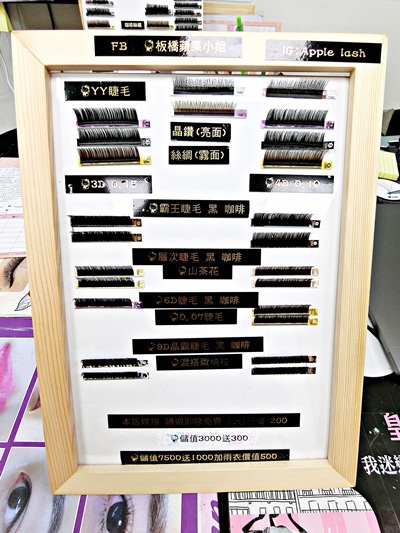 FB 板橋蘋果小姐
IG:Apple lash
YY睫毛
晶鑽(亮面)
絲綢(霧面)
3D 0.1
4D 0.1
霸王睫毛 黑 咖啡
層次睫毛 黑 咖啡
山茶花
6D睫毛 黑 咖啡
0.07睫毛
9D晶霸睫毛 黑 咖啡
混搭嫁接
200
儲值3000送300
儲值7500送1000加雨衣價值500
我迷